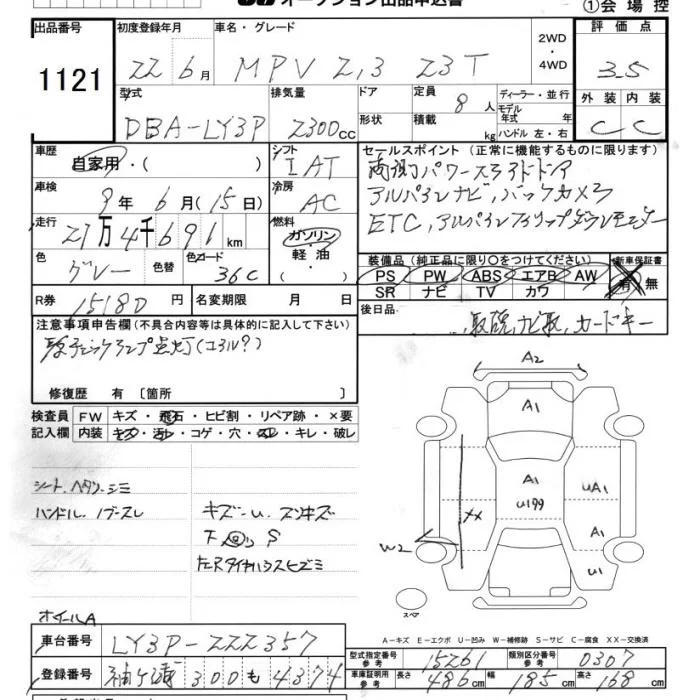 オークション出品申込書 ①会場控
出品番号 初度登録年月 車名・グレード 2WD・4WD 評価点
1121 22年6月 MPV 2.3 23T 3.5
型式 排気量 ドア形状 定員 8人 積載 kg ディーラー・並行 モデル年式 年 ハンドル 左・右 外装 内装
DBA-LY3P 2300cc C C
車歴 自家用・( ) シフト IAT セールスポイント(正常に機能するものに限ります)
両側パワースライドドア
車検 9年6月(15日) 冷房 AC アルパインナビ、バックカメラ
走行 27万4千691km 燃料 ガソリン・軽油・( ) ETC、アルパインフリップダウンモニター
色 グレー 色替 色コード 36C 装備品(純正品に限り○をつけてください) 新車保証書
PS PW ABS エアB AW 有・無
SR ナビ TV カワ
R券 15180円 名変期限 月 日 後日品 取説,ナビ取,カードキー
注意事項申告欄(不具合内容等は具体的に記入して下さい)
エンジンチェックランプ点灯(コイル?)
修復歴 有〔箇所 〕
検査員記入欄 FW キズ・飛石・ヒビ割・リペア跡・×要
内装 キズ・汚レ・コゲ・穴・スレ・キレ・破レ
シート、ヘタリ、シミ
ハンドル、ノブスレ キズ~U、スリキズ
下回り S
左Rタイヤハウスヒズミ
ホイールA
A2
A1
A1
U199
UA1
XX
A1
W2
U1
スペア
A-キズ E-エクボ U-凹み W-補修跡 S-サビ C-腐食 XX-交換済
車台番号 LY3P-222357 型式指定番号 参考 15261 類別区分番号 参考 0307
登録番号 袖ヶ浦 300 も 4374 車庫証明用参考 長さ 486cm 幅 185cm 高さ 168cm